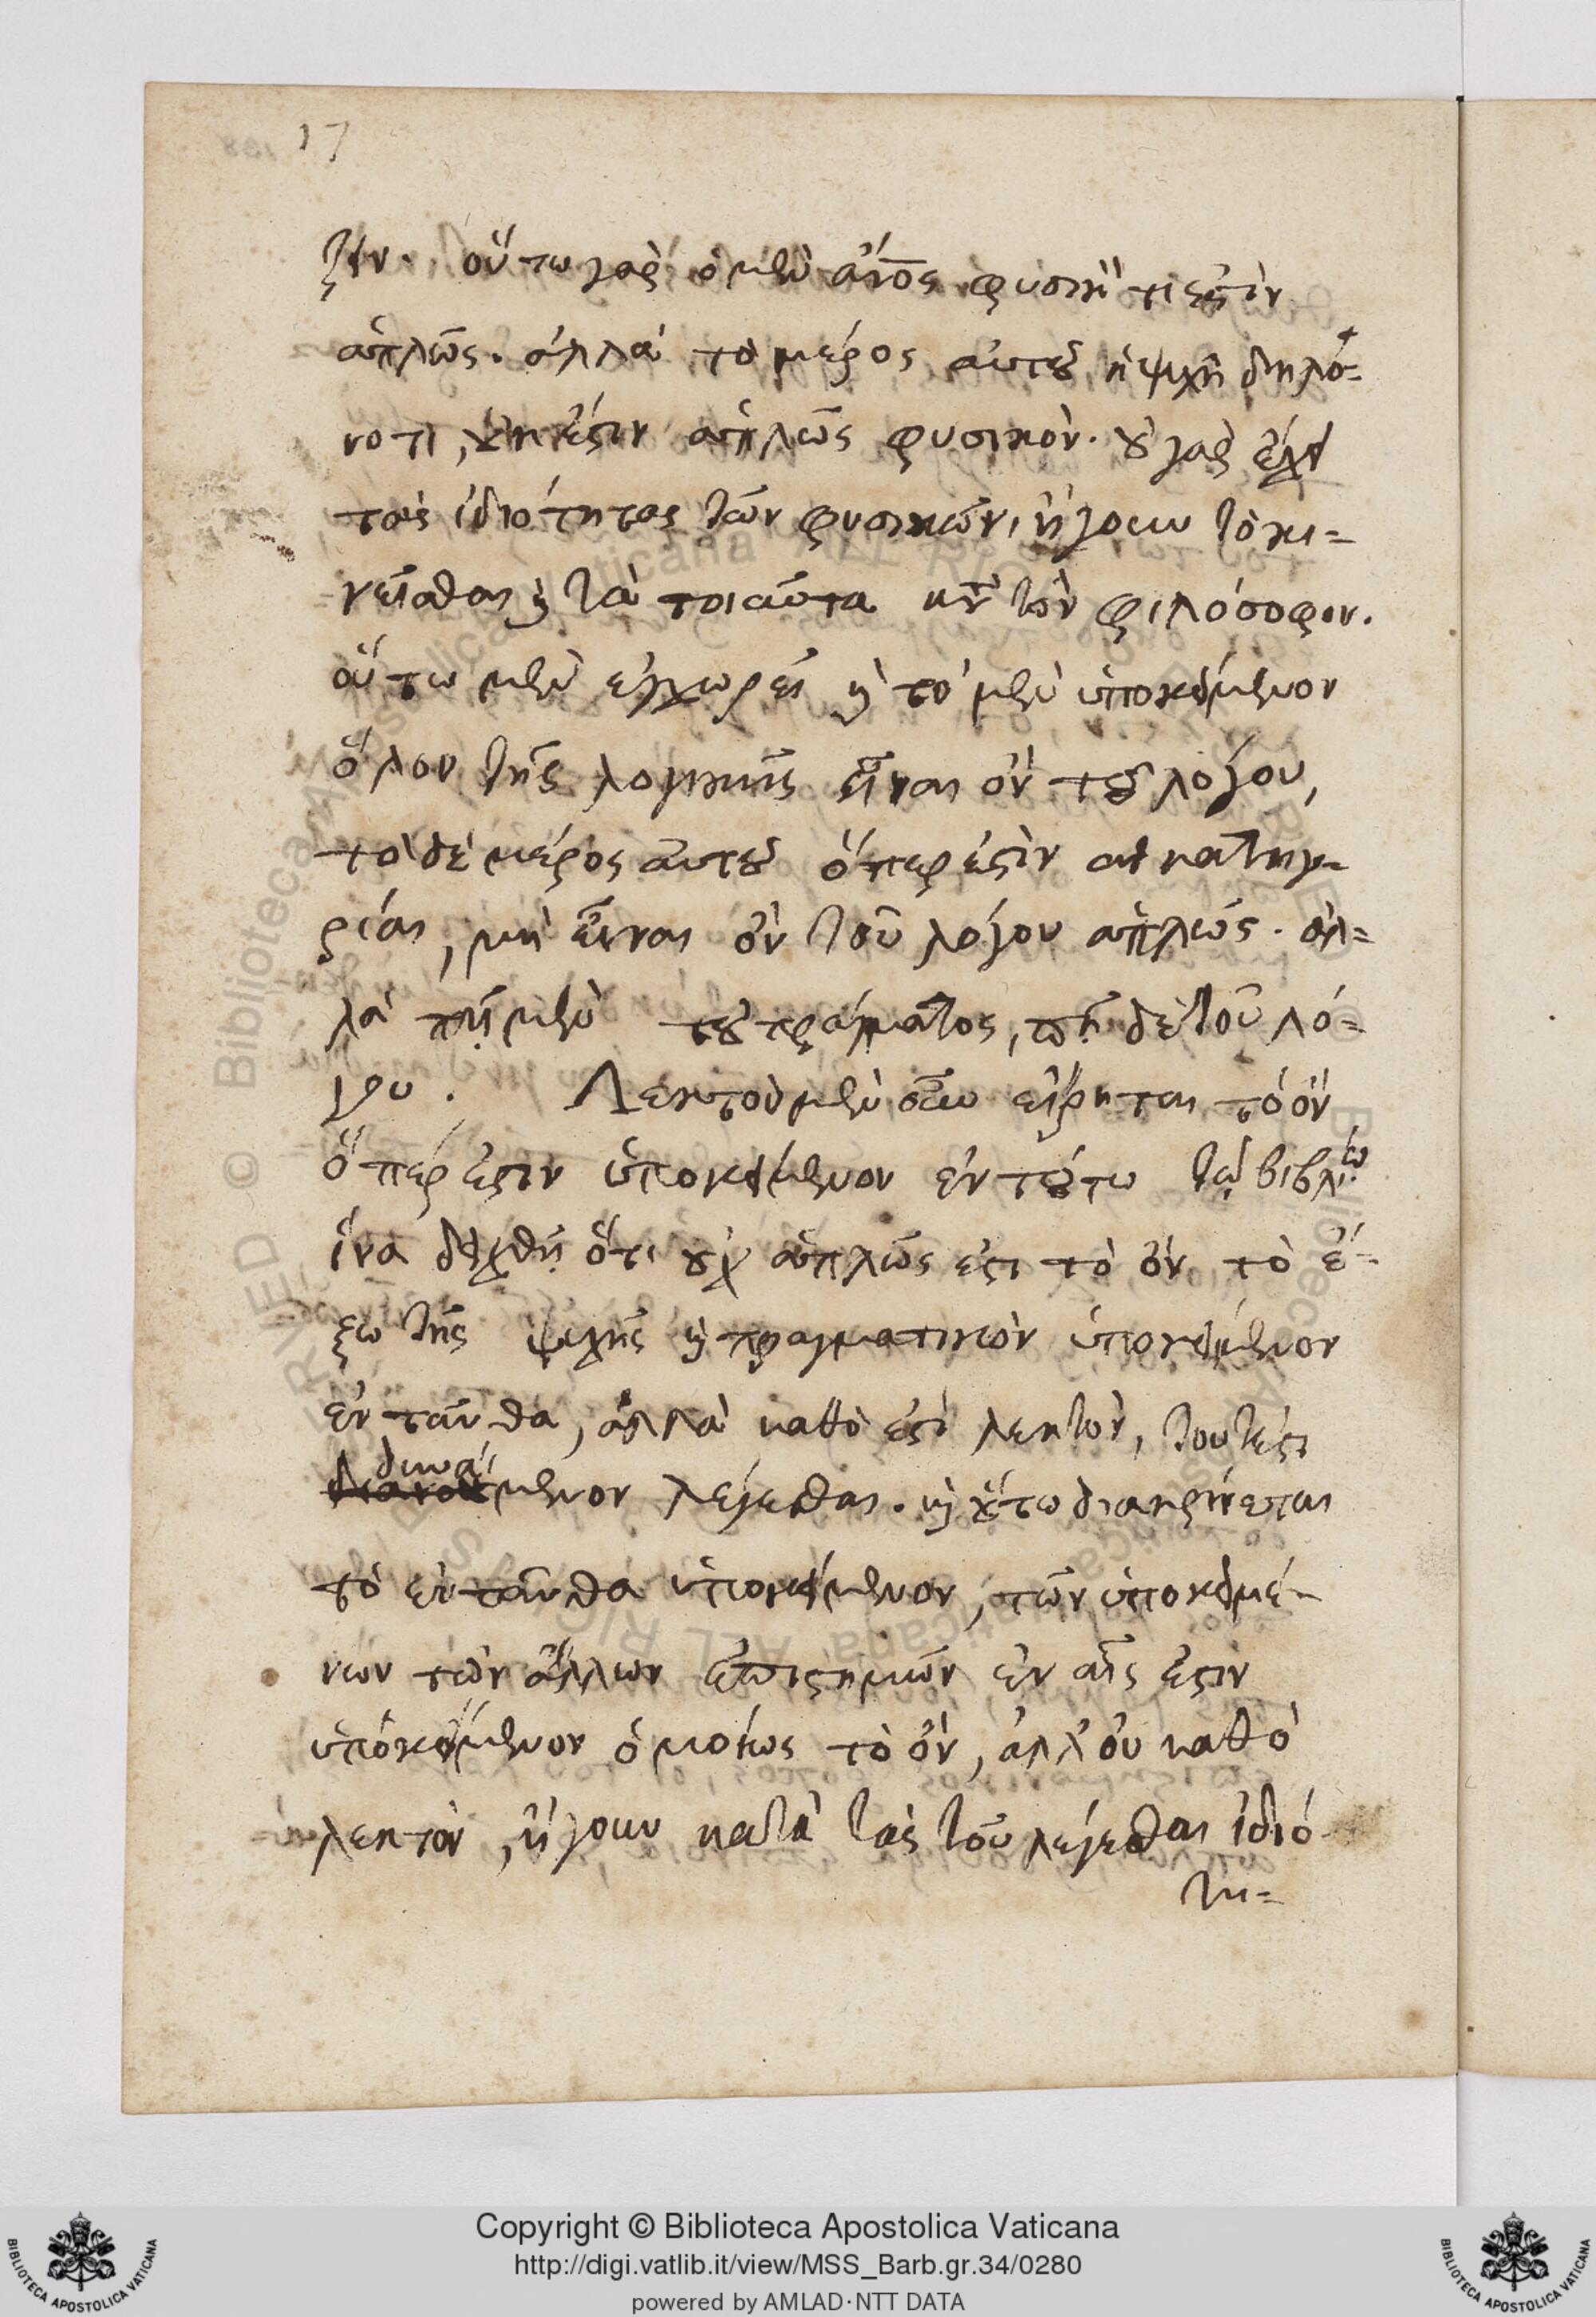 17
ξιν. οὕτω γὰρ ὁ μὲν ἄνος φυσικόν τί ἐστιν
ἁπλῶς. ἀλλὰ τὸ μέρος αὐτοῦ ἡ ψυχὴ δηλό=
νοτι, οὐκ ἔστιν ἁπλῶς φυσικόν. οὐ γὰρ ἔχει
τὰς ἰδιότητας τῶν φυσικῶν, ἤγουν τὸ κι=
νεῖσθαι καὶ τὰ τοιαῦτα κατὰ τὸν φιλόσοφον.
οὕτω μὲν ἐγχωρεῖ καὶ τὸ μὲν ὑποκείμενον
ὅλον τῆς λογικῆς εἶναι ὂν τοῦ λόγου,
τὸ δὲ μέρος αὐτοῦ ὅπερ ἐστὶν αἱ κατηγο-
ρίαι, μὴ εἶναι ὂν τοῦ λόγου ἁπλῶς. ἀλ=
λὰ πῇ μὲν τοῦ πράγματος, πῇ δὲ τοῦ λό=
γου. Λεκτὸν μὲν οὖν εἴρηται τὸ ὂν
ὅπέρ ἐστιν ὑποκείμενον ἐν τούτῳ τῷ βιβλίῳ
ἵνα δειχθῇ ὅτι οὐχ ἁπλῶς ἐστι τὸ ὂν τὸ ἔ-
ξω τῆς ψυχῆς καὶ πραγματικὸν ὑποκείμενον
ἐνταῦθα, ἀλλὰ καθό ἐστι λεκτὸν, τουτέστι
δυνάμενον λέγεσθαι. καὶ οὕτω διακρίνεται
τὸ ἐνταῦθα ὑποκείμενον, τῶν ὑποκειμέ-
νων τῶν ἄλλων ἐπιστημῶν ἐν αἷς ἐστιν
ὑποκείμενον ὁμοίως τὸ ὂν, ἀλλ' οὐ καθὸ
λεκτὸν, ἤγουν κατὰ τὰς τοῦ λέγεσθαι ἰδιό-
τη=
Copyright © Biblioteca Apostolica Vaticana
http://digi.vatlib.it/view/MSS_Barb.gr.34/0280
powered by AMLAD·NTT DATA